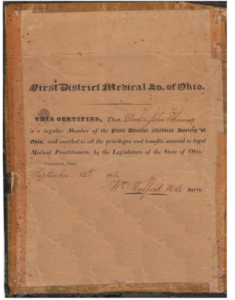 First District Medical So. of Ohio.
THIS CERTIFIES, That Doctor John
is a regular Member of the First District Medical Society of
Ohio, and entitled to all the privileges and benefits secured to legal
Medical Practitioners, by the Legislature of the State of Ohio.
Cincinnati, Ohio,
September 12th
Wm Sec'ry.